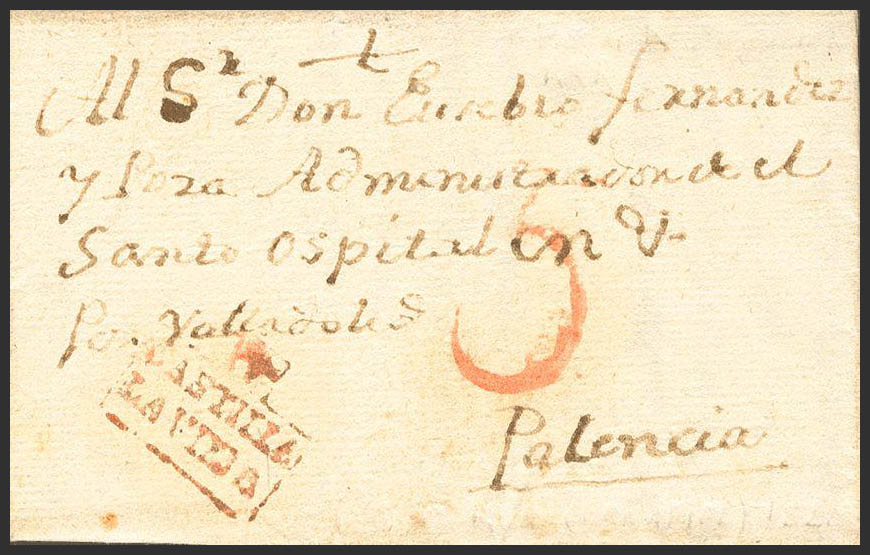 Al Sr Don Eusebio fernandez
y Poza Administrador de el
Santo Ospital en V.
Por Valladolid
CASTILLA
LA VIEJA
5
Palencia